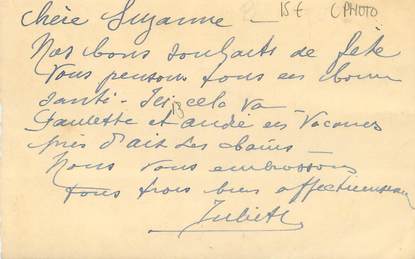 Chère Suzanne – 15 € CPHOTO
Nos bons souhaits de fête
Vous pensons tous en bonne
santé - Ici cela va
Paulette et andré en Vacances
près d'aix les bains –
Nous vous embrassons
tous trois bien affectueusement
Juliette